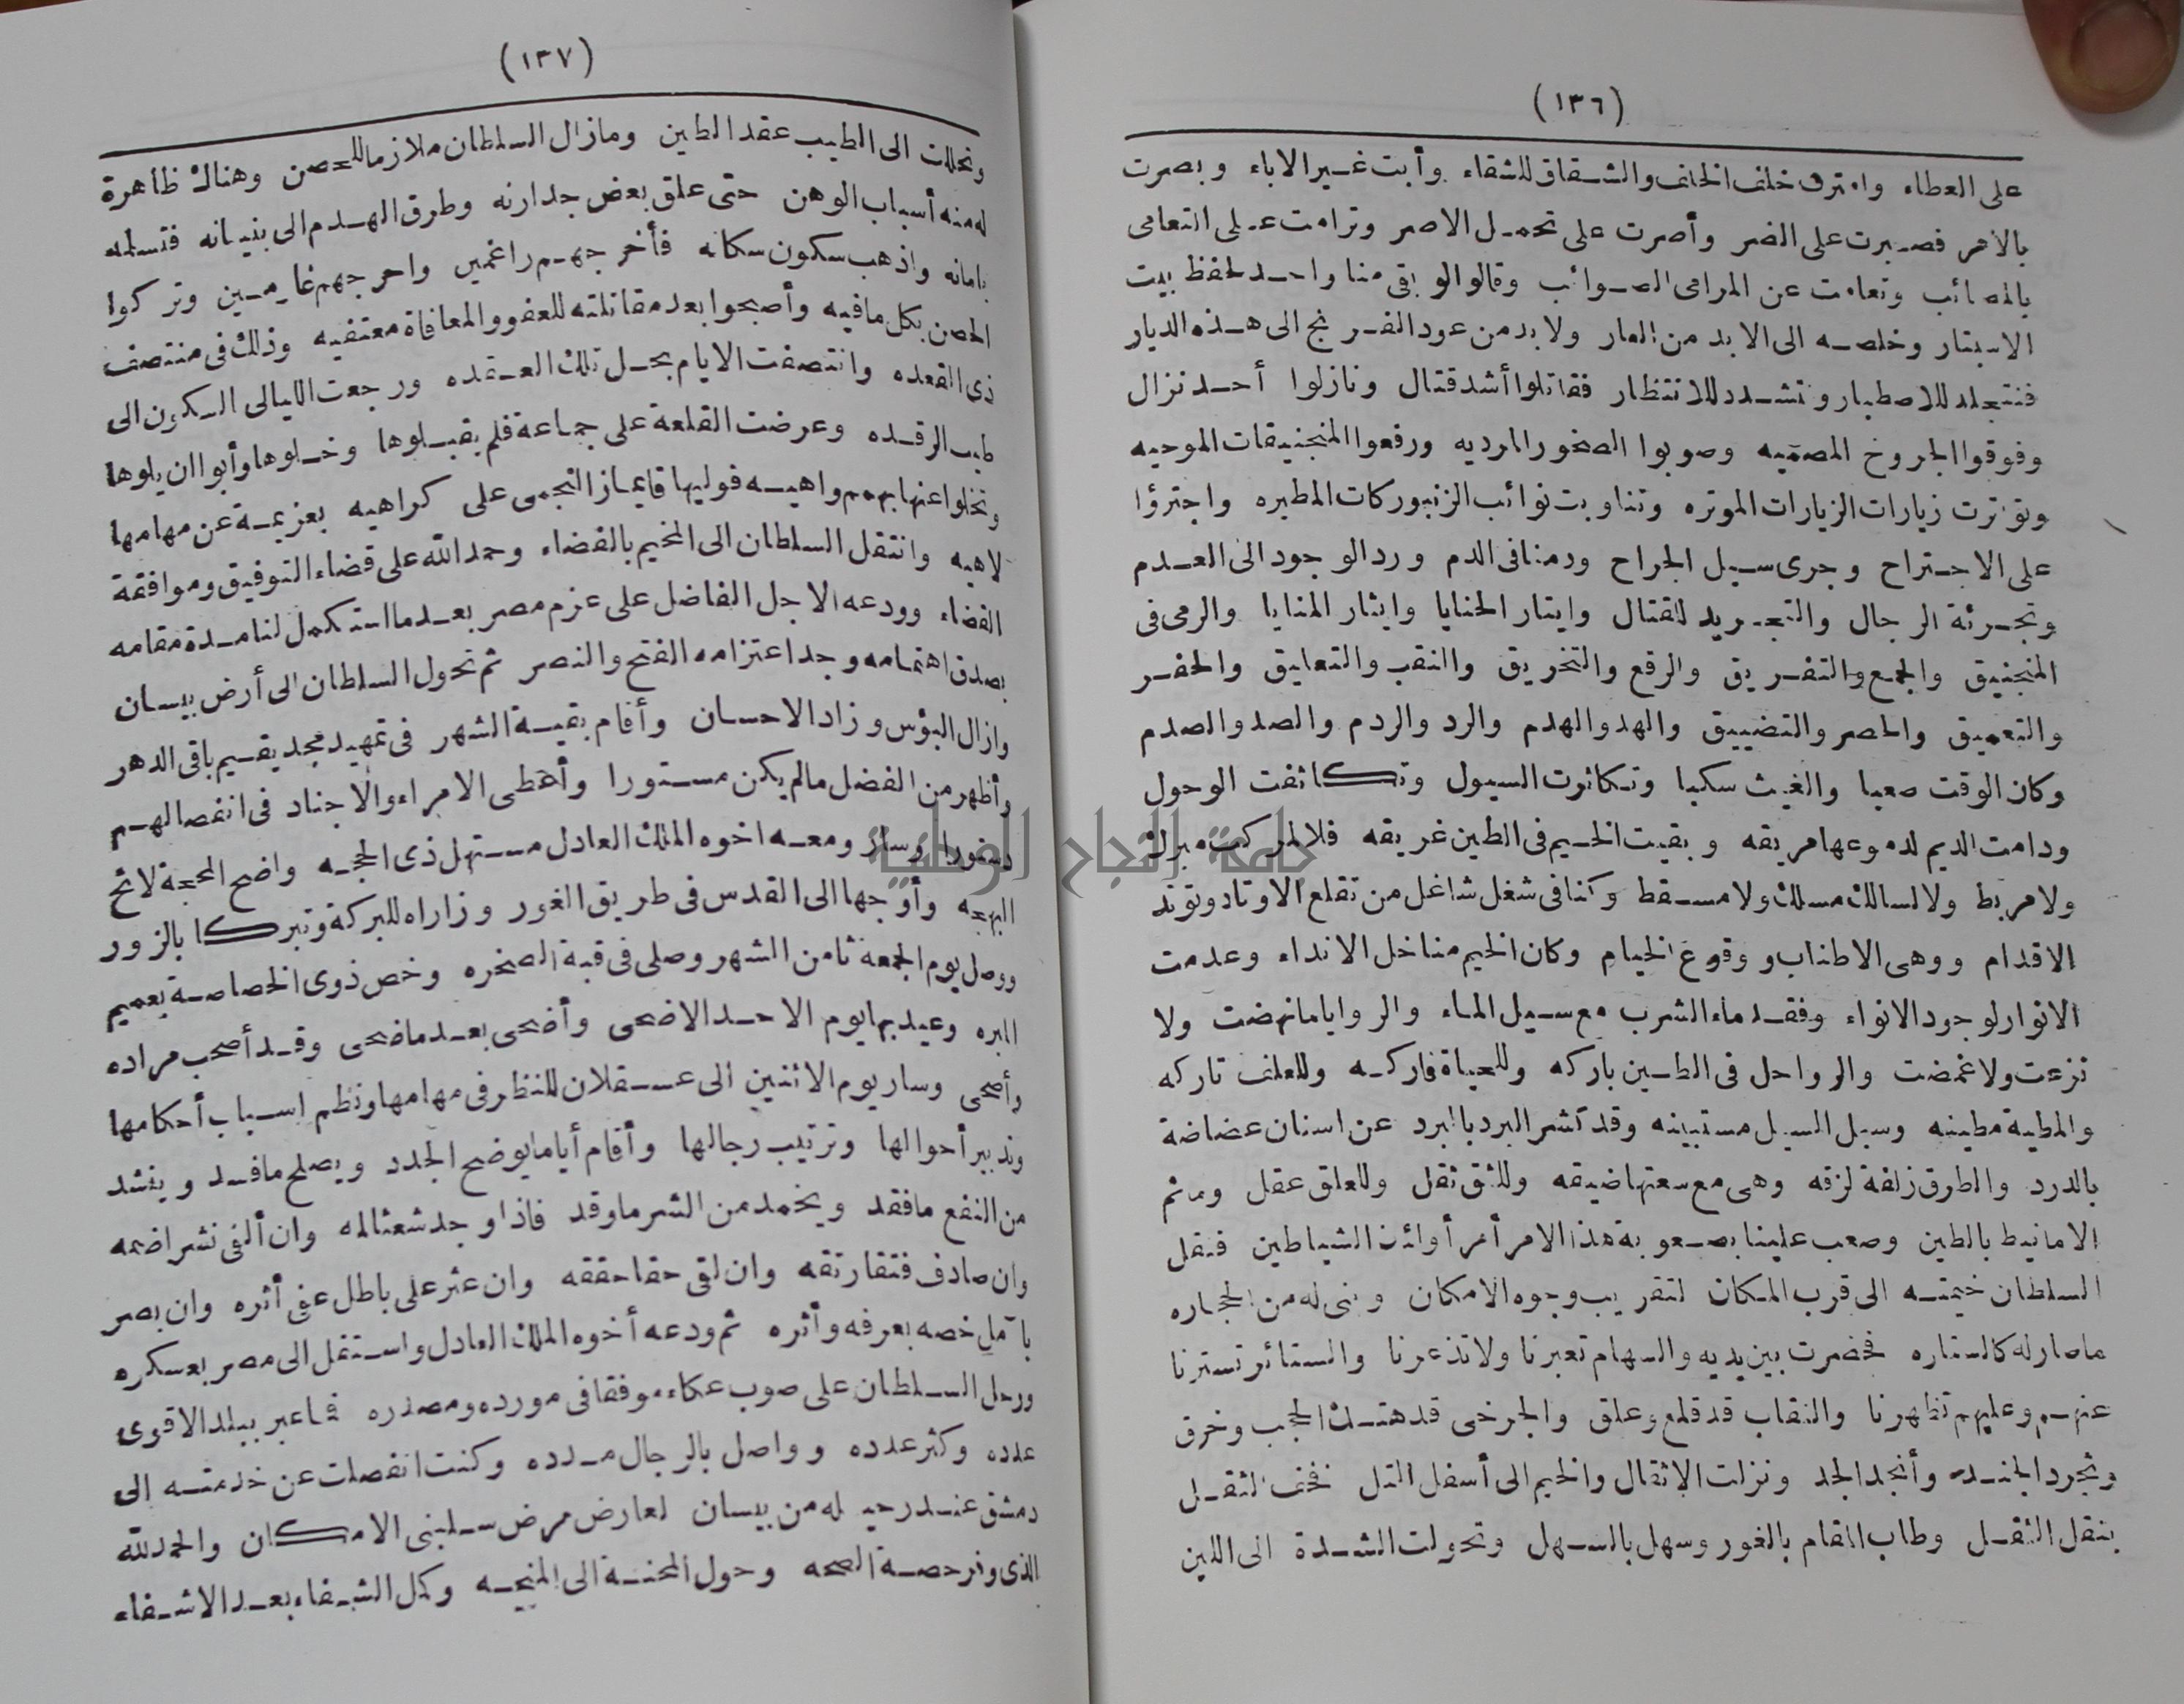 (١٣٦)
على العطاء وامترت خلف الخلف والشقاق للشقاء وأبت غير الاباء وبصرت
بالامر فصبرت على الضر وأصرت على تحمل الاصر وترامت على التعامى
بالمصائب وتعامت عن المرامى الصوائب وقالوا لو بقى منا واحد لحفظ بيت
الاسبتار وخلصه الى الابد من العار ولا بد من عود الفرنج الى هذه الديار
فنتجلد للاصطبار ونتشدد للانتظار فقاتلوا أشد قتال ونازلوا أحد نزال
وفوقوا الجروخ المصميه وصوبوا الصخور المرديه ورفعوا المنجنيقات الموحيه
وتوترت زيارات الزيارات الموتره وتناوبت نوائب الزنبوركات المطيره واجترؤا
على الاجتراح وجرى سيل الجراح ودمنا فى الدم ورد الوجود الى العدم
وتجرئة الرجال والتجريد للقتال وايتار الحنايا وايثار المنايا والرمى فى
المنجنيق والجمع والتفريق والرقع والتخريق والنقب والتعليق والحفر
والتعميق والحصر والتضييق والهد والهدم والرد والردم والصد والصدم
وكان الوقت صعبا والغيث سكبا وتكاثرت السيول وتكاثفت الوحول
ودامت الديم لدموعها مريقه وبقيت الخيم فى الطين غريقه فلا لمركب مبرك
ولا مربط ولا لسالك مسلك ولا مسقط وكنا فى شغل شاغل من تقلع الاوتاد وتوتد
الاقدام ووهى الاطناب ووقوع الخيام وكان الخيم مناخل الانداء وعدمت
الانوار لوجود الانواء وفقد ماء الشرب مع سيل الماء والروايا ما نهضت ولا
نزعت ولا غمضت والرواحل فى الطين باركه وللحياة فاركه وللعلف تاركه
والمطية مطينه وسبل السيل مستبينه وقد كشر البرد بالبرد عن اسنان عضاضة
بالدرد والطرق زلقة لزقه وهى مع سعتها ضيقه وللثق ثقل وللعلق عقل وما ثم
الا ما نيط بالطين وصعب علينا بصعوبة هذا الامر أمر أوائك الشياطين فنقل
السلطان خيمته الى قرب المكان لتقريب وجوه الامكان وبنى له من الحجاره
ما صار له كالستاره فحضرت بين يديه والسهام تعبرنا ولا تذعرنا والستائر تسترنا
عنهم وعليهم تظهرنا والنقاب قد قلع وعلق والجرخى قد هتك الحجب وخرق
وتجرد الجند وأنجد الجد ونزلت الاثقال والخيم الى أسفل التل فخف الثقل
بنقل الثقل وطاب المقام بالغور وسهل بالسهل وتحولت الشدة الى اللين
(١٣٧)
وتحللت الى الطيب عقد الطين ومازال السلطان ملازما للحصن وهناك ظاهرة
له منه أسباب الوهن حتى علق بعض جدارنه وطرق الهدم الى بنيانه فتسلمه
بامانه واذهب سكون سكانه فأخرجهم راغمين واحرجهم غارمين وتركوا
الحصن بكل مافيه وأصبحوا بعد مقاتلته للعفو والمعافاة معتفيه وذلك فى منتصف
ذى القعده وانتصفت الايام بحل تلك العقده ورجعت الليالى السكون الى
طيب الرقده وعرضت القلعة على جماعة فلم يقبلوها وخلوها وأبوا ان يلوها
وتخلوا عنها بهمم واهيه فوليها قايماز النجمى على كراهيه بعزيمة عن مهامها
لاهيه وانتقل السلطان الى المخيم بالفضاء وحمد الله على قضاء التوفيق وموافقة
القضاء وودعه الاجل الفاضل على عزم مصر بعد ما استكمل لنا مدة مقامه
بصدق اهتمامه وجد اعتزامه الفتح والنصر ثم تحول السلطان الى أرض بيسان
وازال البؤس وزاد الاحسان وأقام بقية الشهر فى تمهيد مجد يقيم باقى الدهر
وأظهر من الفضل مالم يكن مستورا وأعطى الامراء والاجناد فى انفصالهم
دستورا وسار ومعه اخوه الملك العادل مستهل ذى الحجه واضح المحجة لائح
البهجه وأوجها الى القدس فى طريق الغور وزاراه للبركة وتبركا بالزور
ووصل يوم الجمعة ثامن الشهر وصلى فى قبة الصخره وخص ذوى الخصاصة بعميم
البره وعيد بها يوم الاحد الاضحى وأضحى بعد ماضحى وقد أصحب مراده
وأصحى وسار يوم الاثنين الى عسقلان للنظر فى مهامها ونظم اسباب أحكامها
وتدبير أحوالها وترتيب رجالها وأقام أياما يوضح الجدد ويصلح مافسد وينشد
من النفع مافقد ويخمد من الشر ماوقد فاذا وجد شعثا لمه وان ألفى نشرا ضمه
وان صادف فتقا رتقه وان لقى حقا حققه وان عثر على باطل عفى أثره وان بصر
بآمل خصه بعرفه وأثره ثم ودعه أخوه الملك العادل واستقل الى مصر بعسكره
ورحل السلطان على صوب عكاء موفقا فى مورده ومصدره فما عبر ببلد الا قوى
عدده وكثر عدده وواصل بالرجال مدده وكنت انفصلت عن خدمته الى
دمشق عند رحيله من بيسان لعارض مرض سلبنى الامكان والحمد لله
الذى وفر حصة الصحه وحول المحنة الى المنحه وكمل الشفاء بعد الاشفاء
جامعة النجاح الوطنية